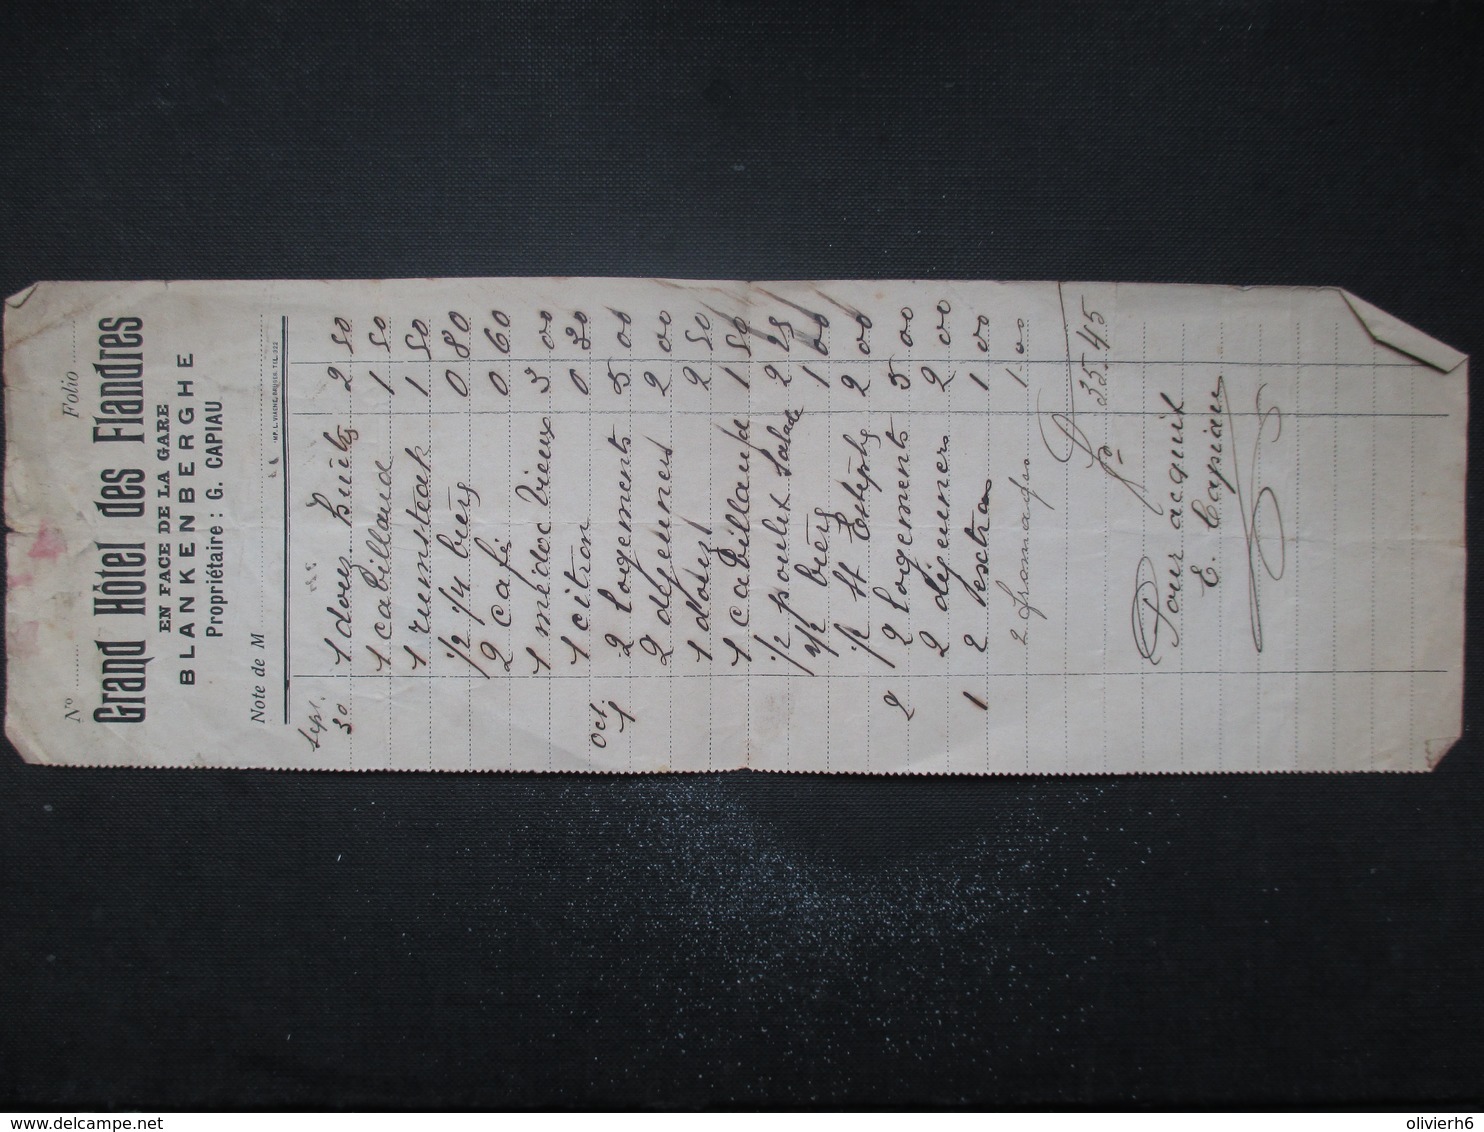 N° Folio
Grand Hôtel des Flandres
EN FACE DE LA GARE
BLANKENBERGHE
Propriétaire : G. CAPIAU
Note de M
Sept.
30 1 douz huîtres 2 50
1 cabillaud 1 50
1 rumsteak 1 50
1/2 1/4 bières 0 80
2 café 0 60
1 médoc vieux 3 00
1 citron 0 30
Oct.
1 2 logements 5 00
2 déjeuners 2 00
1 douz 2 50
1 cabillaud 1 50
1/2 poulet salade 2 25
bières 1 00
1/2 St Estèphe 2 00
2 2 logements 5 00
2 déjeuners 2 00
1 2 1 00
2 fromages 1 00
Fr 35 45
Pour acquit
E. Capiau
olivierh6
delcampe.net